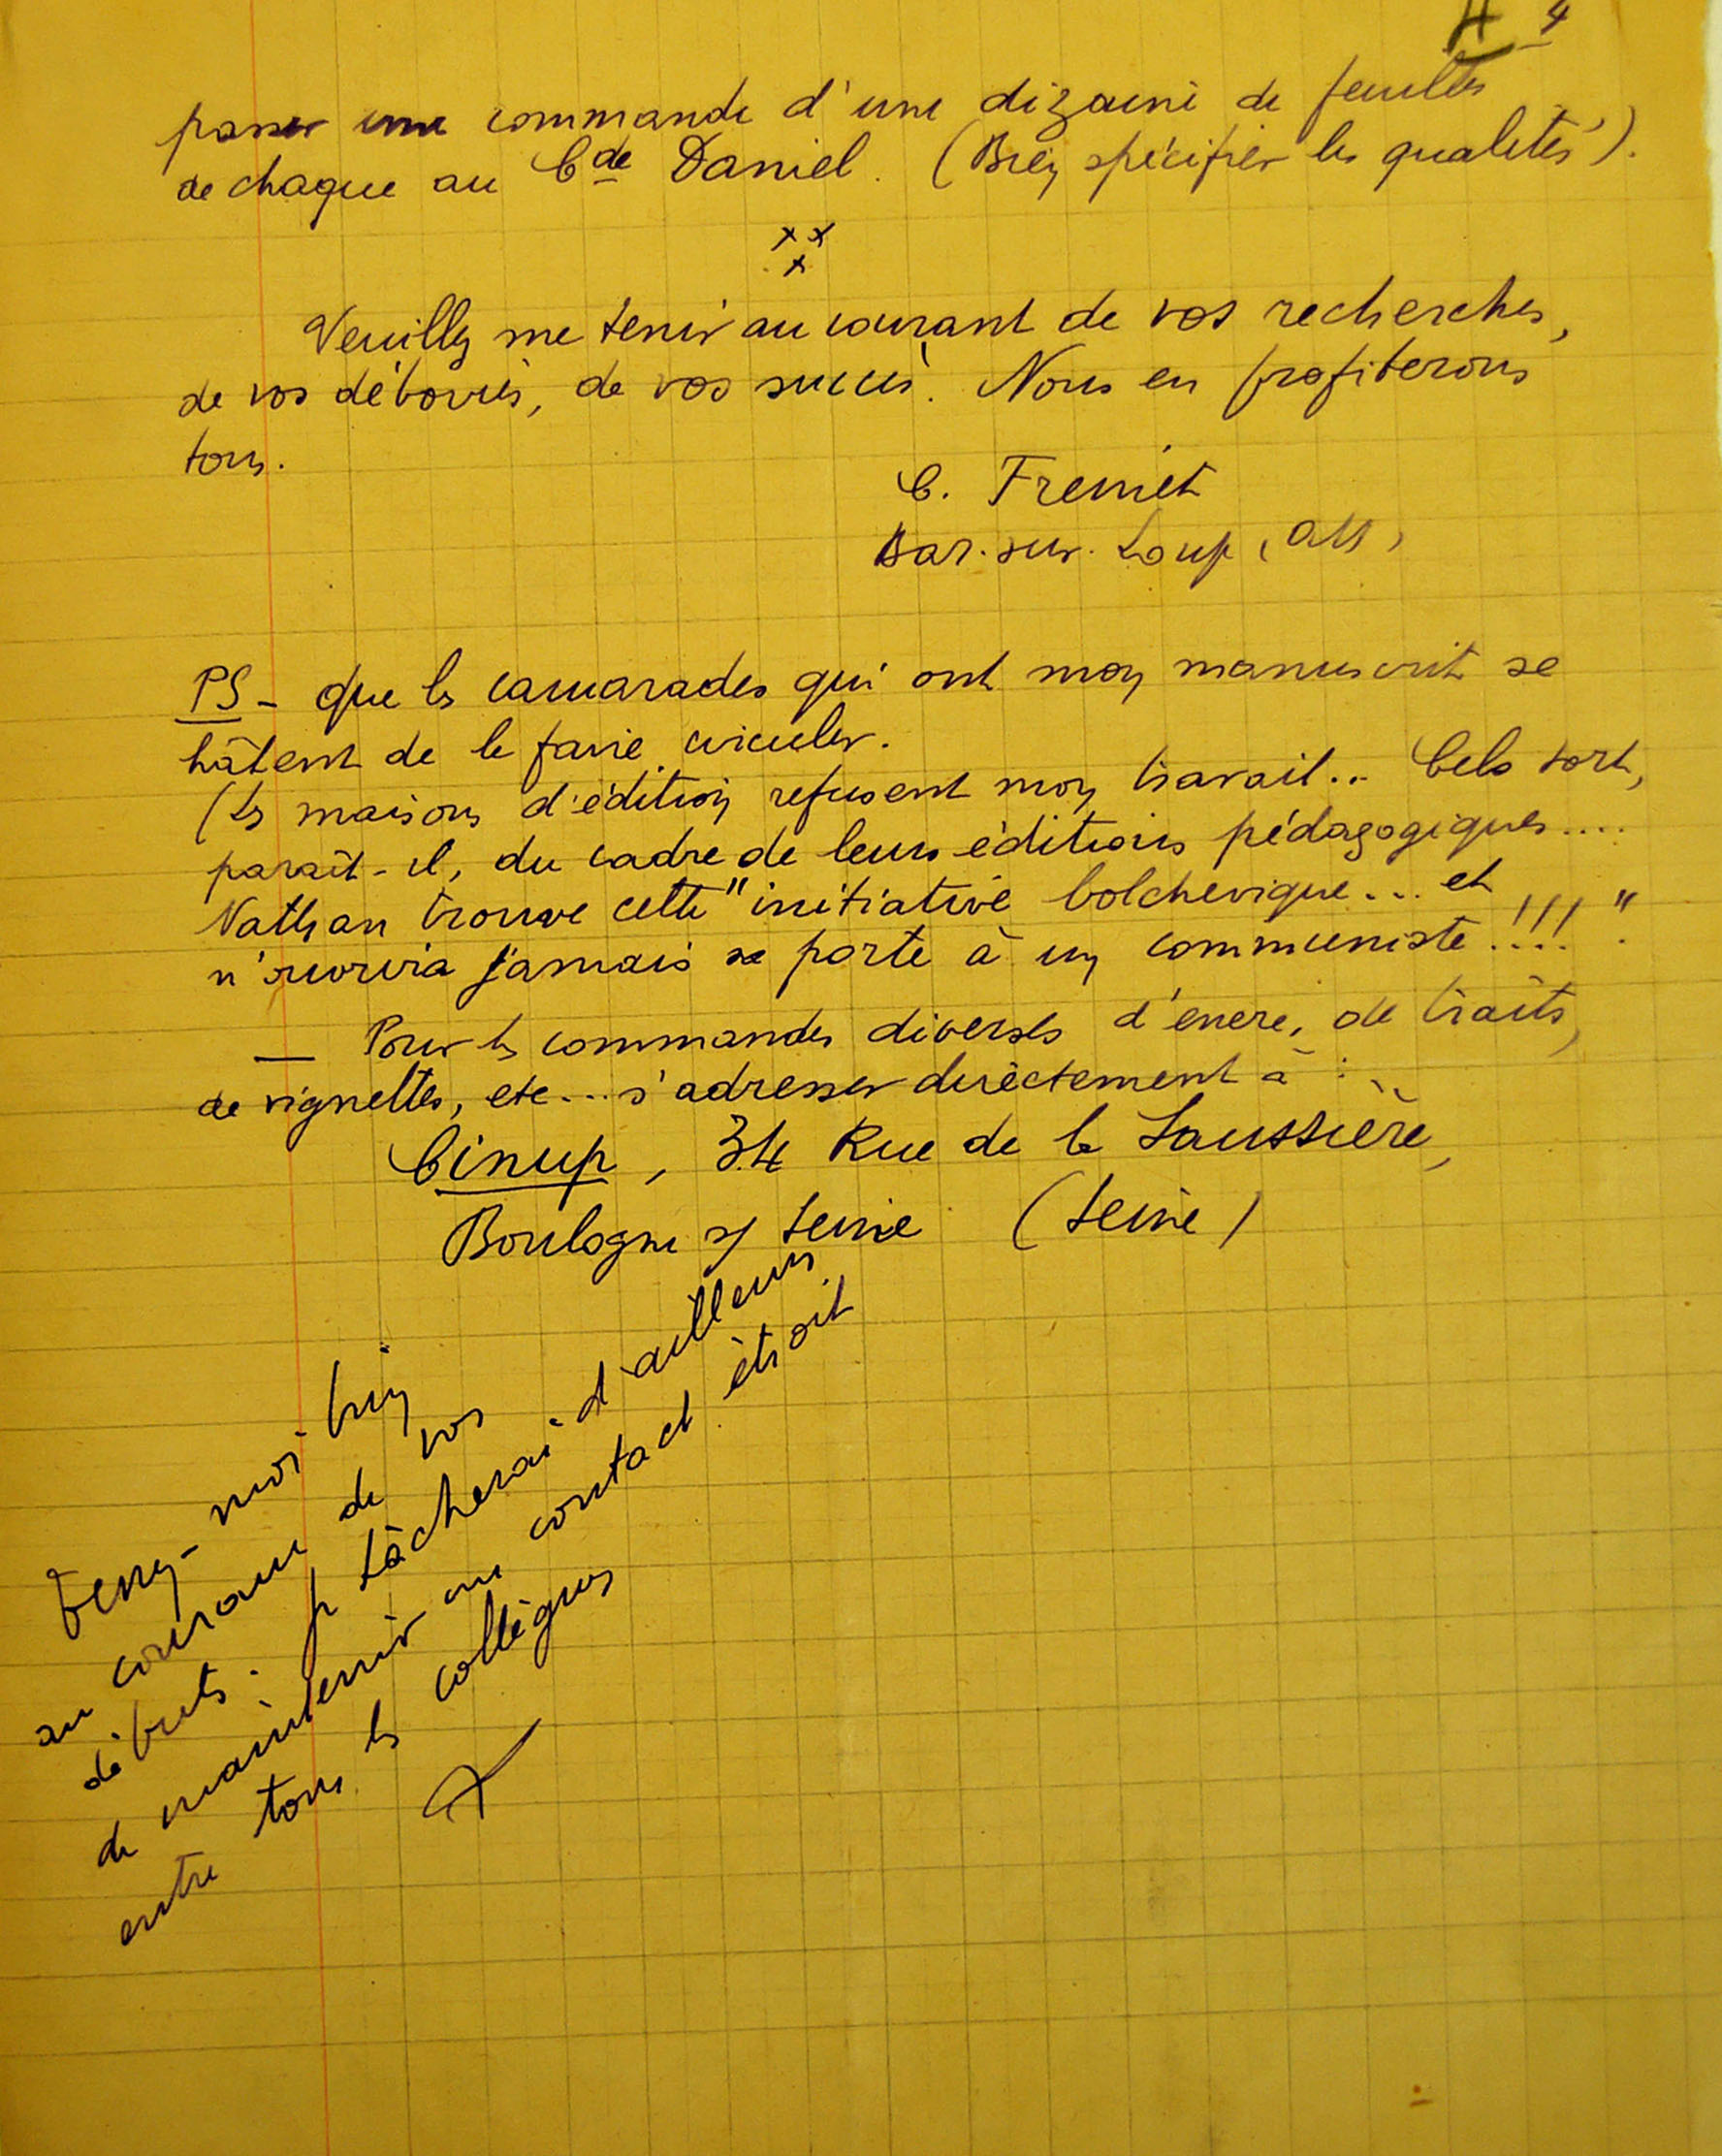 4
passer une commande d'une dizaine de feuilles
de chaque au Cde Daniel. (Bien spécifier les qualités).
x x
x
Veuillez me tenir au courant de vos recherches,
de vos déboires, de vos succès. Nous en profiterons
tous.
C. Freinet
Bar-sur-Loup (AM)
PS - Que les camarades qui ont mon manuscrit se
hâtent de le faire circuler.
(Les maisons d'édition refusent mon travail... Cela sort,
paraît-il, du cadre de leurs éditions pédagogiques....
Nathan trouve cette "initiative bolchevique... et
n'ouvrira jamais sa porte à un communiste!!!!"
— Pour les commandes diverses d'encre, de traits,
de vignettes, etc... s'adresser directement à :
Cinup, 34 Rue de la Saussière,
Boulogne s/ Seine (Seine)
Tenez-moi bien
au courant de vos
débuts. Je tâcherai d'ailleurs
de maintenir un contact étroit
entre tous les collègues